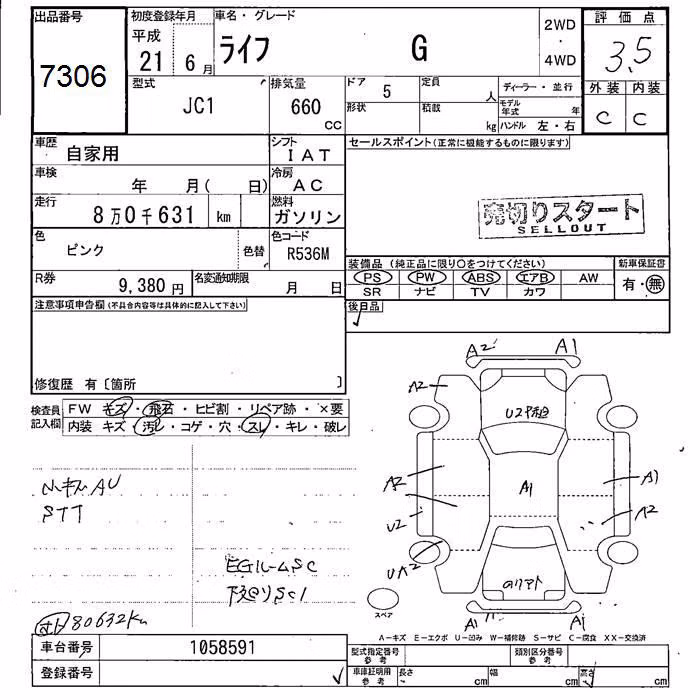 出品番号
7306
初度登録年月
平成
21 6月
車名・グレード
ライフ G
2WD
・
4WD
評価点
3.5
外装 内装
C C
型式
JC1
排気量
660
CC
ドア 5
形状
定員 人
積載 kg
ディーラー・並行
モデル年式 年
ハンドル 左・右
車歴 自家用
シフト IAT
車検 年 月( 日)
冷房 AC
走行 8万0千631 km
燃料 ガソリン
色 ピンク 色替
色コード R536M
R券 9,380円
名変通知期限 月 日
セールスポイント(正常に機能するものに限ります)
売切りスタート
SELLOUT
装備品 (純正品に限り○をつけてください)
新車保証書
PS PW ABS エアB AW
有・無
SR ナビ TV カワ
後日品
注意事項申告欄(不具合内容等は具体的に記入して下さい)
修復歴 有〔箇所 〕
検査員記入欄
FW キズ・飛石・ヒビ割・リペア跡・×要
内装 キズ・汚レ・コゲ・穴・スレ・キレ・破レ
STT
EGルームSC
下廻りSC1
80632Km
A2 A1
A2
A2
U2
UA2
A1
A1
A2
A1 A1
スペア
A-キズ E-エクボ U-凹み W-補修跡 S-サビ C-腐食 XX-交換済
車台番号 1058591
登録番号
型式指定番号 参考
類別区分番号 参考
車庫証明用 参考
長さ cm
幅 cm
高さ cm